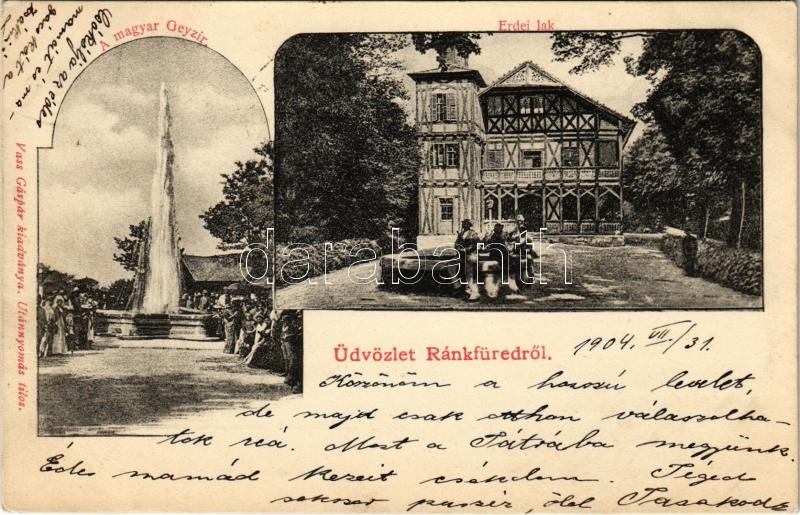 A magyar Geyzir.
Erdei lak.
Vass Gáspár kiadványa. Utánnyomás tilos.
darabanth
Üdvözlet Ránkfüredről. 1904. VII/31.
Köszönöm a hosszú levelet,
de majd csak otthon válaszolha-
tok reá. Most a Tátrába megyünk.
Édes mamád kezeit csókolom. Téged
sokszor puszil, ölel
Csókolja az édes
mamát és ma-